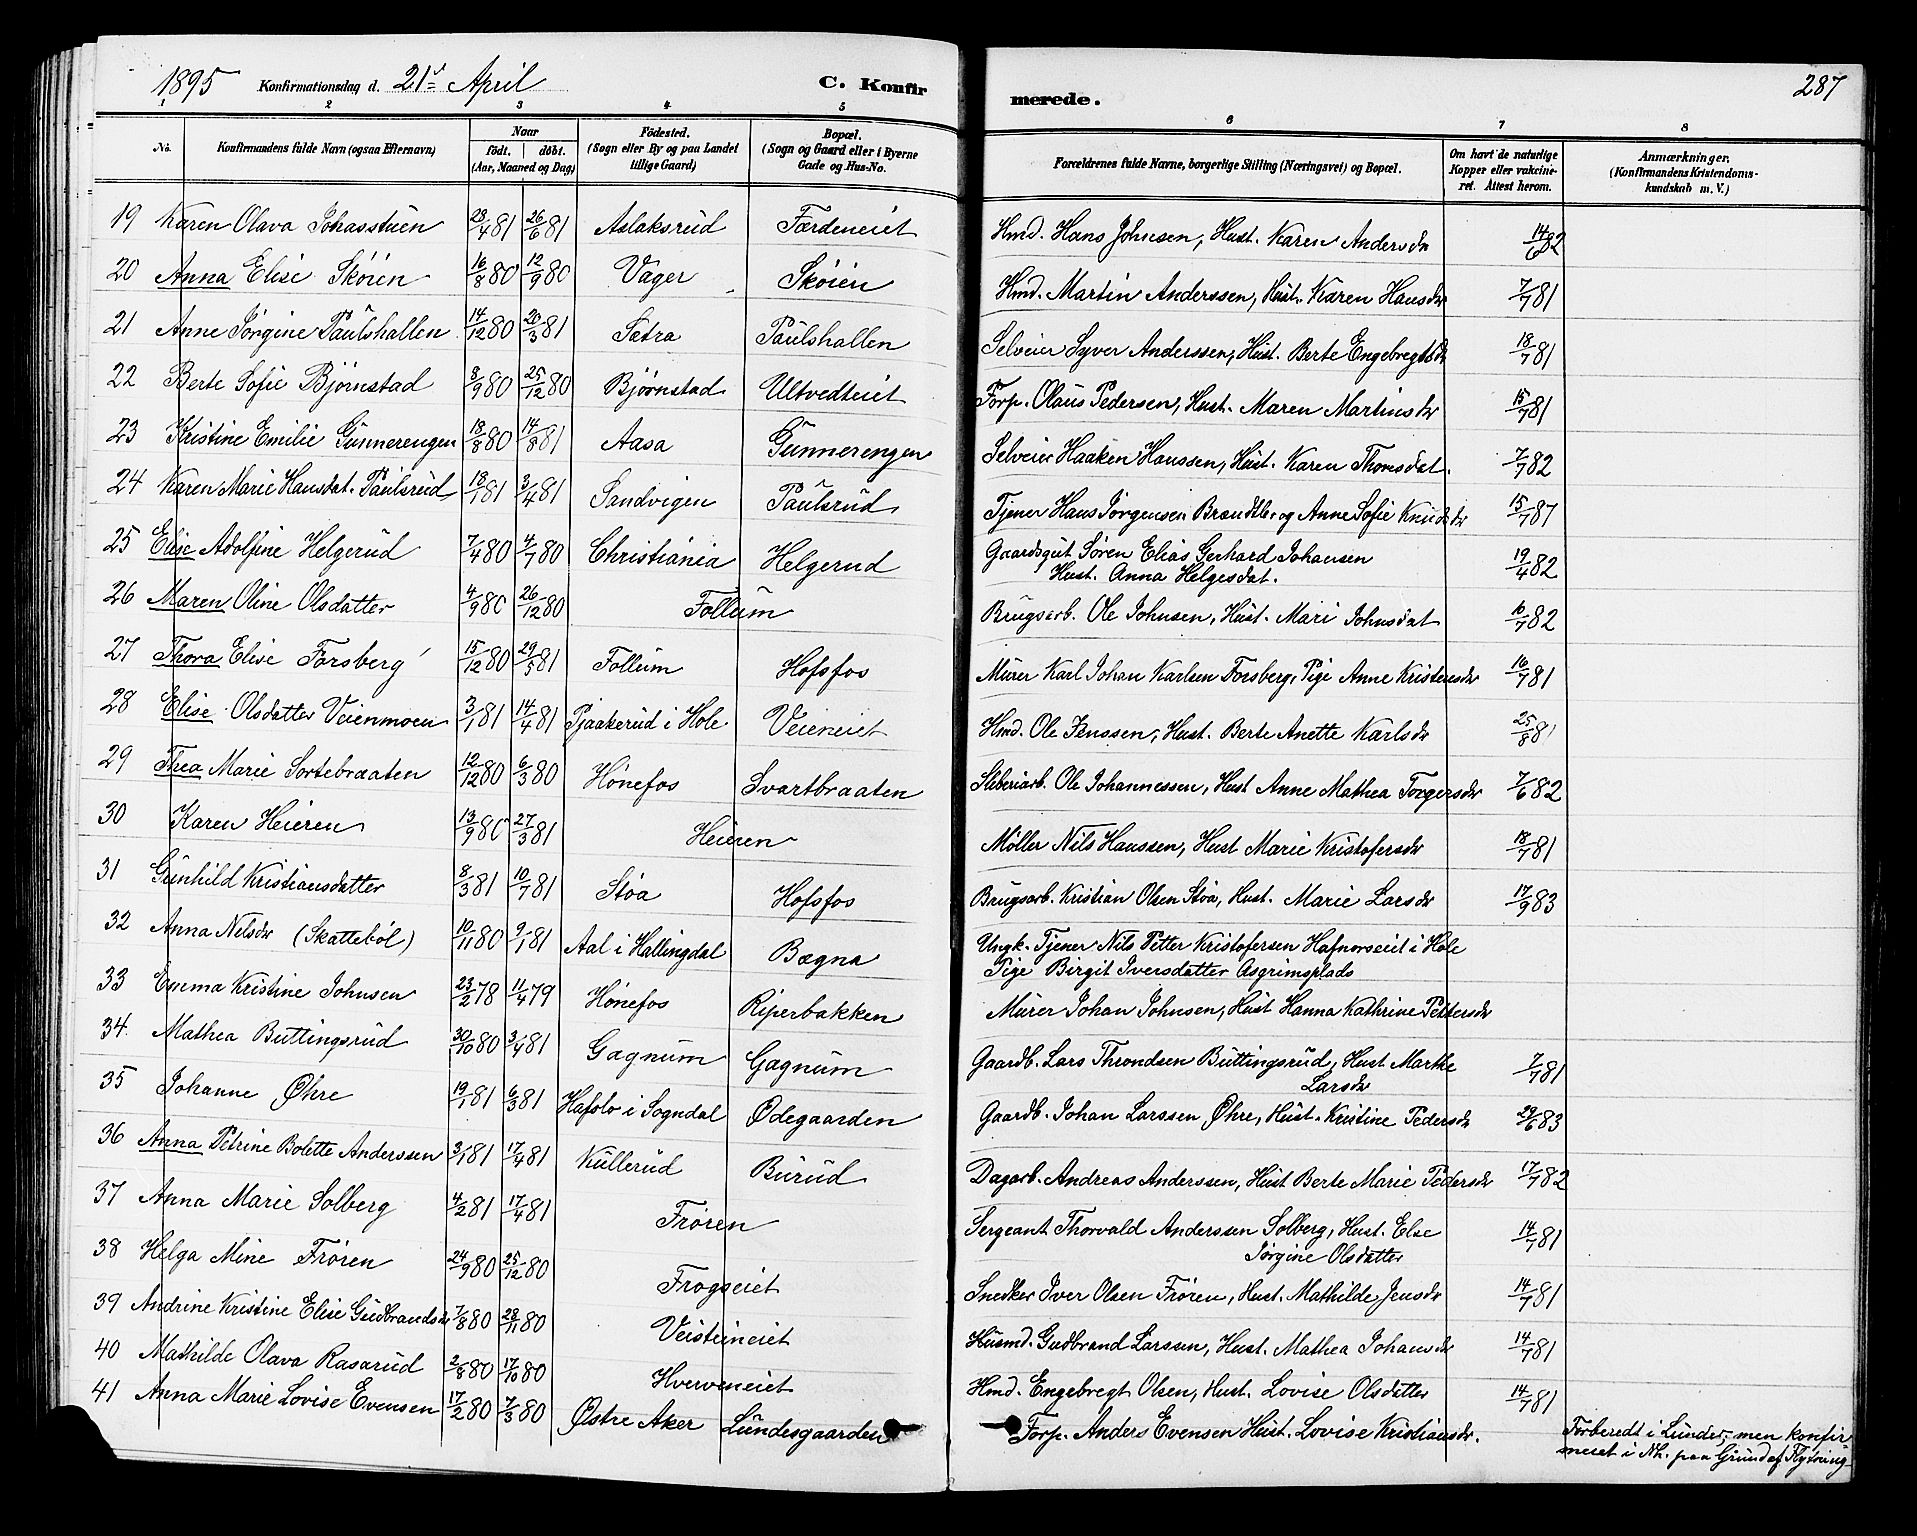 1895 Konfirmationsdag d. 21de April C. Konfir merede. 287
1 2 3 4 5 6 7 8
No. Konfirmandens fulde Navn (ogsaa Efternavn) Naar Födested. Bopæl. Forældrenes fulde Navne, borgerlige Stilling (Næringsvei) og Bopæl. Om havt de naturlige Anmærkninger.
födt. döbt. (Sogn eller By og paa Landet (Sogn og Gaard eller i Byerne Kopper eller vakcine- (Konfirmandens Kristendoms-
(Aar, Maaned og Dag) tillige Gaard) Gade og Hus-No. ret. Attest herom. kundskab m. V.)
19 Karen Olava Johasstuen 23/4 81 26/6 81 Aslaksrud Færdeneiet Hmd. Hans Johnsen, Hust. Karen Andersdr 14/6 82
20 Anna Elise Skøien 16/8 80 12/9 80 Vager Skøien Hmd. Martin Anderssen, Hust. Karen Hansdr 7/7 81
21 Anne Jørgine Paulshallen 14/12 80 20/3 81 Sætra Paulshallen Selveier Syver Anderssen, Hust. Berte Engebregtsdr 18/7 81
22 Berte Sofie Bjørnstad 8/9 80 25/12 80 Bjørnstad Ultvedteiet Forp. Olaus Pedersen, Hust. Maren Martinsdr 15/7 81
23 Kristine Emilie Gunnerengen 18/8 80 14/8 81 Aasa Gunnerengen Selveier Haaken Hanssen, Hust. Karen Thorsdat. 7/7 82
24 Karen Marie Hansdat. Paulsrud 18/1 81 3/4 81 Sandvigen Paulsrud Tjener Hans Jørgensen Brandtb. og Anne Sofie Knudsdr 15/7 87
25 Elise Adolfine Helgerud 7/4 80 4/7 80 Christiania Helgerud Gaardsgut Søren Elias Gerhard Johansen 19/4 82
Hust. Anna Helgesdat.
26 Maren Oline Olsdatter 4/9 80 26/12 80 Follum Brugsarb. Ole Johnsen, Hust. Mari Johnsdat 10/7 82
27 Thora Elise Forsberg 15/12 80 29/5 81 Follum Hofsfos Murer Karl Johan Karlsen Forsberg, Pige Anne Kristensdr 16/7 81
28 Elise Olsdatter Veienmoen 3/1 81 14/4 81 Pjaakerud i Hole Veieneiet Hmd. Ole Jenssen, Hust. Berte Anette Karlsdr 25/8 81
29 Thea Marie Sortebraaten 12/12 80 6/3 80 Hönefos Svartbraaten Sliberiarb. Ole Johannessen, Hust Anne Mathea Torgersdr 7/6 82
30 Karen Heieren 13/9 80 27/3 81 Heieren Møller Nils Hanssen, Hust Marie Kristofersdr 18/7 81
31 Gunhild Kristiansdatter 8/3 81 10/7 81 Støa Hofsfos Brugsarb. Kristian Olsen Støa, Hust. Marie Larsdr 17/9 83
32 Anna Nilsdr (Skattebøl) 10/11 80 9/1 81 Aal i Hallingdal Bægna Ungk. Tjener Nils Petter Kristofersen Hafnorseiet i Hole
Pige Birgit Iversdatter Asgrimsplads
33 Emma Kristine Johnsen 23/2 78 11/4 79 Hönefos Riperbakken Murer Johan Johnsen, Hust Hanna Kathrine Pettersdr
34 Mathea Buttingsrud 30/10 80 3/4 81 Gagnum Gagnum Gaardb. Lars Throndsen Buttingsrud, Hust Marthe 7/7 81
Larsdr
35 Johanne Øhre 19/1 81 6/3 81 Hafslo i Sogndal Ødegaarden Gaardb. Johan Larssen Øhre, Hust. Kristine Pedersdr 29/6 83
36 Anna Petrine Bolette Anderssen 3/1 81 17/4 81 Kullerud Burud Dagarb. Andreas Anderssen, Hust Berte Marie Pedersdr 17/7 82
37 Anna Marie Solberg 4/2 81 17/4 81 Frøren Sergeant Thorvald Anderssen Solberg, Hust. Else 14/7 81
Jørgine Olsdatter
38 Helga Mine Frøren 24/9 80 25/12 80 Frogseiet Snedker Iver Olsen Frøren, Hust. Mathilde Jensdr 14/7 81
39 Andrine Kristine Elise Gudbrandsdr 7/8 80 28/11 80 Veisteineiet Husmd. Gudbrand Larssen, Hust. Mathea Johansdr 14/7 81
40 Mathilde Olava Rasarud 2/8 80 17/10 80 Hverveneiet Hmd. Engebregt Olsen, Hust. Lovise Olsdatter 14/7 81
41 Anna Marie Lovise Evensen 17/2 80 7/3 80 Østre Aker Lundesgaarden Forp. Anders Evensen Hust. Lovise Kristiansdr. Forberedt i Lunder, men konfir
meret i Nh. paa Grund af Flytning